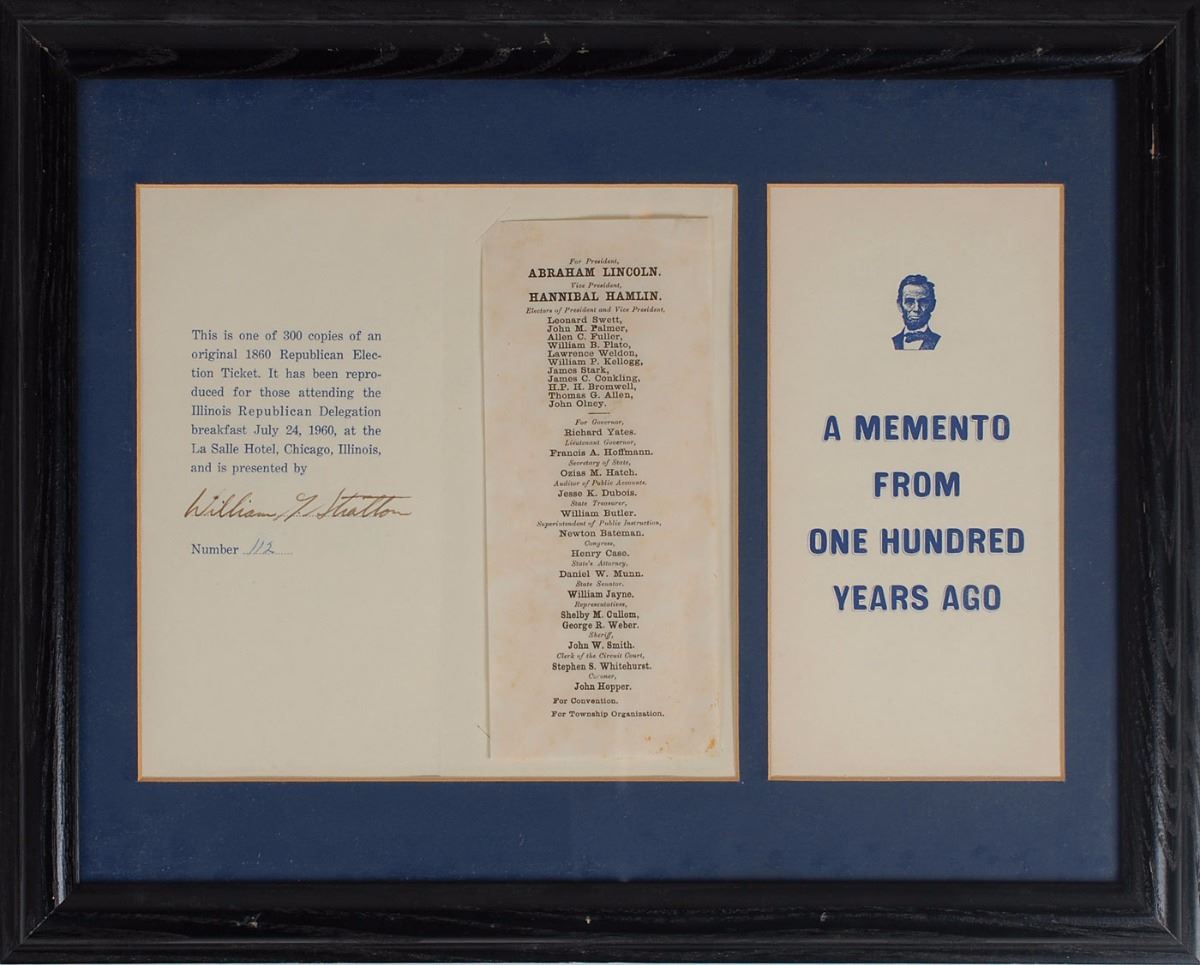 This is one of 300 copies of an
original 1860 Republican Elec-
tion Ticket. It has been repro-
duced for those attending the
Illinois Republican Delegation
breakfast July 24, 1960, at the
La Salle Hotel, Chicago, Illinois,
and is presented by
William G. Stratton
Number 112
For President,
ABRAHAM LINCOLN.
Vice President,
HANNIBAL HAMLIN.
Electors of President and Vice President,
Leonard Swett,
John M. Palmer,
Allen C. Fuller,
William B. Plato,
Lawrence Weldon,
William P. Kellogg,
James Stark,
James C. Conkling,
H.P. H. Bromwell,
Thomas G. Allen,
John Olney.
For Governor,
Richard Yates.
Lieutenant Governor,
Francis A. Hoffmann.
Secretary of State,
Ozias M. Hatch.
Auditor of Public Accounts.
Jesse K. Dubois.
State Treasurer,
William Butler.
Superintendent of Public Instruction,
Newton Bateman.
Congress,
Henry Case.
State's Attorney,
Daniel W. Munn.
State Senator.
William Jayne.
Representatives,
Shelby M. Cullom,
George R. Weber.
Sheriff,
John W. Smith.
Clerk of the Circuit Court,
Stephen S. Whitehurst.
Coroner,
John Hopper.
For Convention.
For Township Organization.
A MEMENTO
FROM
ONE HUNDRED
YEARS AGO